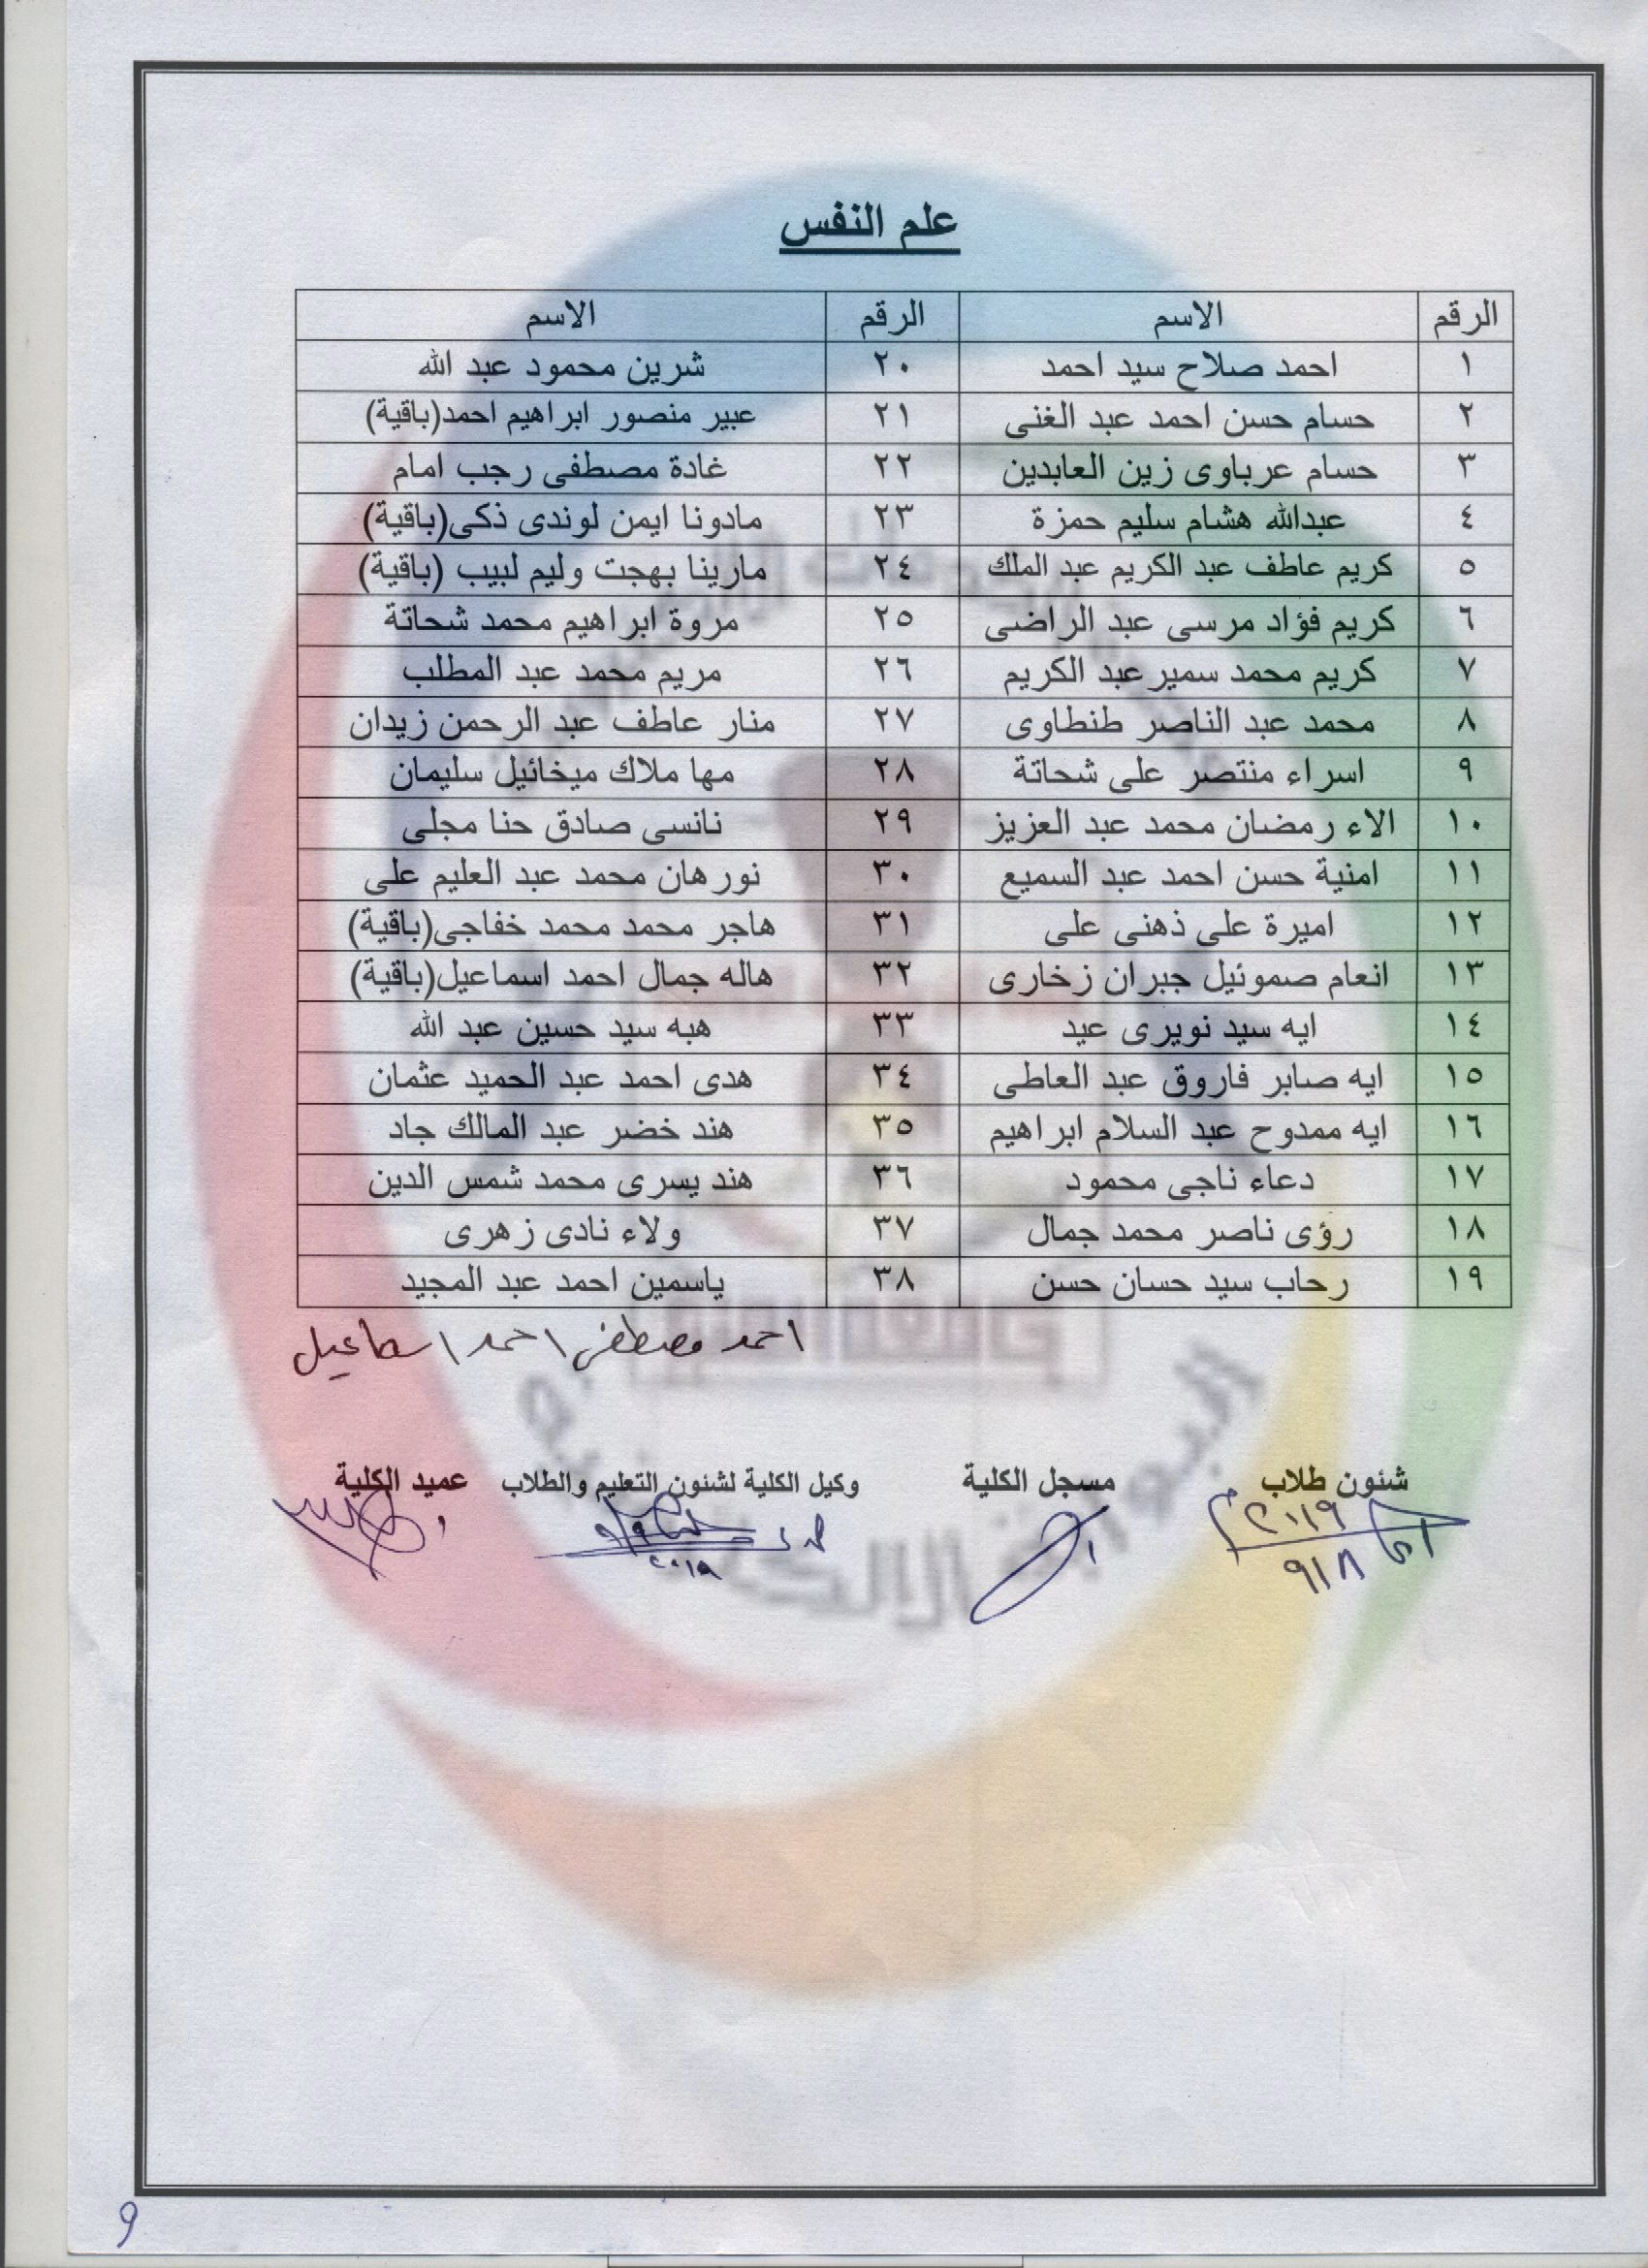 علم النفس
الرقم الاسم الرقم الاسم
١ احمد صلاح سيد احمد ٢٠ شرين محمود عبد الله
٢ حسام حسن احمد عبد الغنى ٢١ عبير منصور ابراهيم احمد(باقية)
٣ حسام عرباوى زين العابدين ٢٢ غادة مصطفى رجب امام
٤ عبدالله هشام سليم حمزة ٢٣ مادونا ايمن لوندى ذكى(باقية)
٥ كريم عاطف عبد الكريم عبد الملك ٢٤ مارينا بهجت وليم لبيب (باقية)
٦ كريم فؤاد مرسى عبد الراضى ٢٥ مروة ابراهيم محمد شحاتة
٧ كريم محمد سمير عبد الكريم ٢٦ مريم محمد عبد المطلب
٨ محمد عبد الناصر طنطاوى ٢٧ منار عاطف عبد الرحمن زيدان
٩ اسراء منتصر على شحاتة ٢٨ مها ملاك ميخائيل سليمان
١٠ الاء رمضان محمد عبد العزيز ٢٩ نانسى صادق حنا مجلى
١١ امنية حسن احمد عبد السميع ٣٠ نورهان محمد عبد العليم على
١٢ اميرة على ذهنى على ٣١ هاجر محمد محمد خفاجى(باقية)
١٣ انعام صموئيل جبران زخارى ٣٢ هاله جمال احمد اسماعيل(باقية)
١٤ ايه سيد نويرى عيد ٣٣ هبه سيد حسين عبد الله
١٥ ايه صابر فاروق عبد العاطى ٣٤ هدى احمد عبد الحميد عثمان
١٦ ايه ممدوح عبد السلام ابراهيم ٣٥ هند خضر عبد المالك جاد
١٧ دعاء ناجى محمود ٣٦ هند يسرى محمد شمس الدين
١٨ رؤى ناصر محمد جمال ٣٧ ولاء نادى زهرى
١٩ رحاب سيد حسان حسن ٣٨ ياسمين احمد عبد المجيد
احمد مصطفى احمد اسماعيل
شئون طلاب مسجل الكلية وكيل الكلية لشئون التعليم والطلاب عميد الكلية
٢٠١٩
٩/٨
٢٠١٩
٩